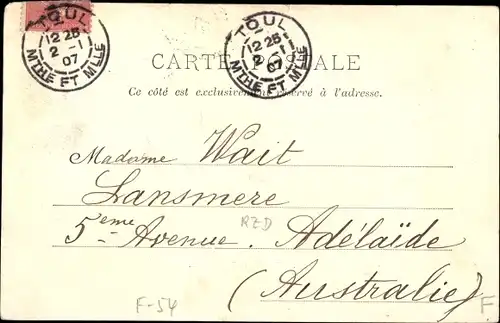 TOUL
12 25
2 -1
07
MTHE ET MLLE
TOUL
12 25
2 -1
07
MTHE ET MLLE
CARTE POSTALE
Ce côté est exclusivement réservé à l'adresse.
Madame Wait
Lansmere
5eme Avenue. Adélaïde
(Australie)
RZD
F-54
F